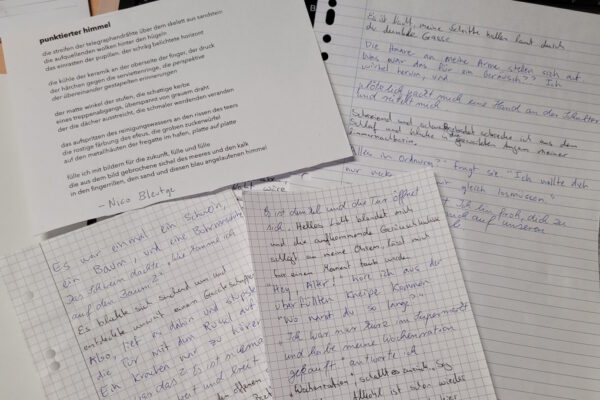 punktierter himmel
die streifen der telegraphendrähte über dem skelett aus sandstein
die aufquellenden wolken hinter den hügeln
das einrasten der pupillen, der schräg belichtete horizont
die kühle der keramik an der oberseite der finger, der druck
der härchen gegen die serviettenringe, die perspektive
der übereinander gestapelten erinnerungen
der matte winkel der stufen, die schattige kerbe
eines treppenabgangs, überspannt von grauem draht
der die dächer ausstreicht, die schmaler werdenden veranden
das aufspritzen des reinigungswassers an den rissen des teers
die rostige färbung des efeus, die groben zuckerwürfel
auf den metallhäuten der fregatte im hafen, platte auf platte
fülle ich mit bildern für die zukunft, fülle und fülle
die aus dem bild gebrochene sichel des meeres und den kalk
in den fingerrillen, den sand und diesen blau angelaufenen himmel
- Nico Bleutge
Es ist kalt, meine Schritte hallen laut durch
die dunkle Gasse
Die Haare an meine Arme stellen sich auf
Was war das für ein Geräusch?? Ich
wirbel herum, und
plötzlich packt mich eine Hand an der Schulter
und rüttelt mich
Schreiend und schweißgebadet schrecke ich aus dem
Schlaf und blicke in die Augen meiner
Alles in Ordnung? fragt sie. "Ich wollte dich
nur gleich loslassen
Ich bin froh, dich zu
auch auf unseren
Es war einmal ein Schwein,
ein Baum, und eine Bohrmaschine
Das Schwein dachte: „Wie komme ich
auf den Baum?"
Es blickte sich suchend um und
entdeckte unweit einen
Also, lief es dahin und
die Tür mit dem Rüssel auf
Ein Krachen war zu hören
breit und breit
Es ist dunkel und die Tür öffnet
sich. Helles Licht blendet mich
und die aufkommende Geräuschkulisse
schlägt an meine Ohren, lässt mich
für einen Moment taub werden
"Hey, Alter!" höre ich aus der
überfüllten Kneipe kommen
"Wo warst du so lange?"
"Ich war nur kurz im Supermarkt
und habe meine Wochenration
gekauft" antworte ich
"Wochenration, schallt es zurück.
Alkohl ist schon wieder